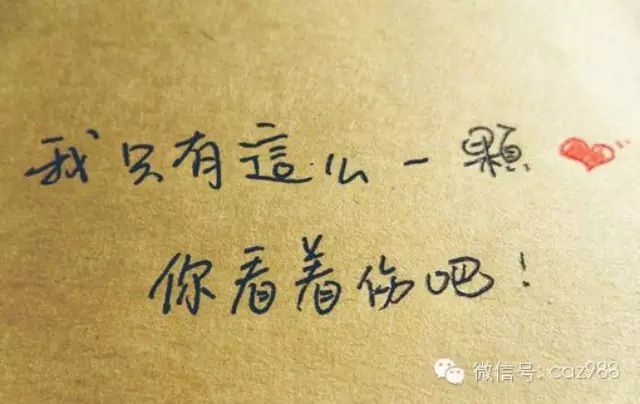 我只有這么一顆
你看着伤吧！
微信号: caz988